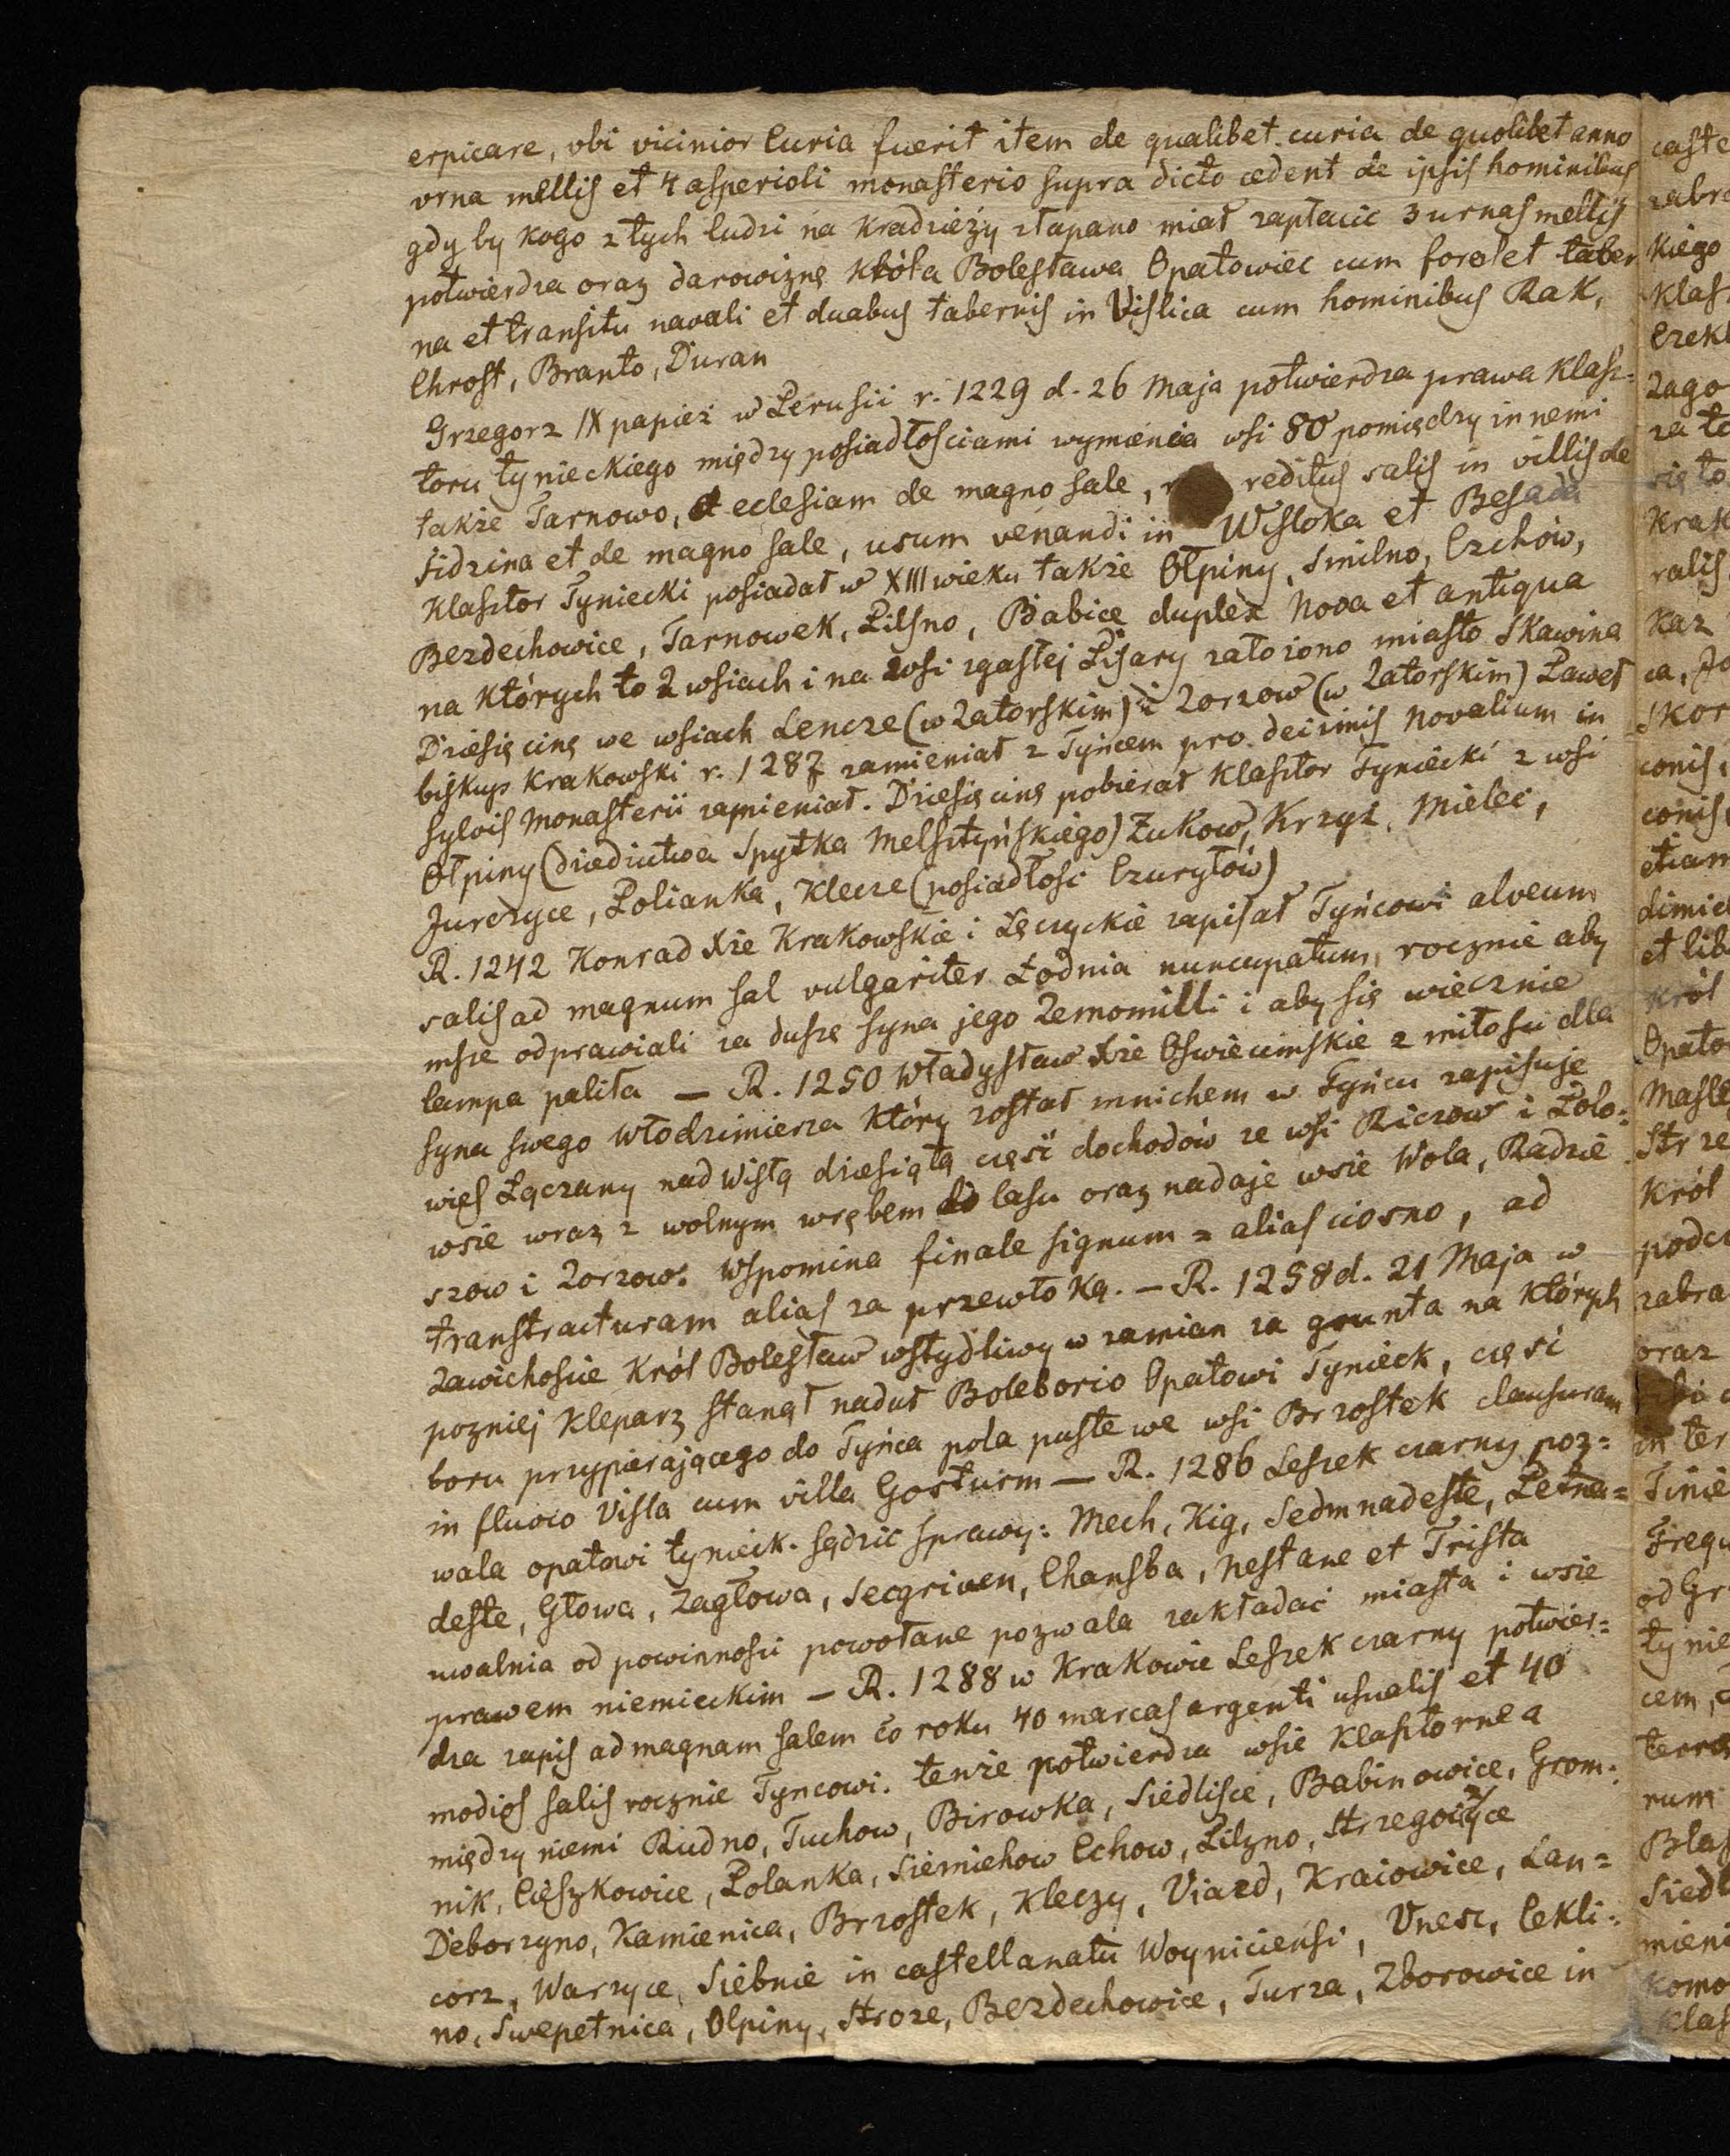 erpicare, vbi vicinior Curia fuerit item de qualibet curia de quolibet anno
vrna mellis et 4 asperioli monasterio supra dicto cedent de ipsis hominibus
gdy by kogo z tych ludzi na kradzieży złapano miał zapłacic 3 urnas mellis
potwierdza oraz darowiznę króla Bolesława Opatowiec cum foro et taber
na et transitu navali et duabus tabernis in Vislica cum hominibus Rak,
Chrost, Branto, Duran
Grzegorz IX papież w Perusii r. 1229 d. 26 Maja potwierdza prawa klasz=
toru tynieckiego między posiadłosciami wymienia wsi 80 pomiędzy innemi
także Tarnowo, et eclesiam de magno sale, reditus salis in villis de
Sidzina et de magno sale, usum venandi in Wisloka et Besada
Klasztor Tyniecki posiadał w XIII wieku także Olpiny, Smilno, Czchów,
Bezdechowice, Tarnowek, Pilsno, Babice duplex Nova et antiqua
na których to 2 wsiach i na wsi zgasłej Pisary założono miasto Skawina
Dziesięcinę we wsiach Lencze (w Zatorskim) i Zorzow (w Zatorskim) Paweł
biskup Krakowski r. 1287 zamieniał z Tyńcem pro decimis Novalium in
sylvis Monasterii zamieniał. Dziesięcinę pobierał Klasztor Tyniecki z wsi
Ołpiny (dziedzictwa Spytka Melsztyńskiego) Żukow, Krzyż, Mielec,
Jurczyce, Polianka, Klecze (posiadłosci Czuryłów)
R. 1242 Konrad Xże Krakowskie i Łęczyckie zapisał Tyńcowi alveum
salis ad magnum sal vulgariter Łodnia nuncupatum, rocznie aby
msze odprawiali za duszę syna jego Zemomilli i aby się wiecznie
lampa paliła — R. 1250 Władysław Xże Oświecimskie z miłosci dla
syna swego Włodzimierza który został mnichem w Tyńcu zapisuje
wieś Łączany nad Wisłą dziesiątą część dochodów ze wsi Riczow i Polo=
wsie wraz z wolnym wrębem do lasu oraz nadaje wsie Wola, Radzie
szow i Zorzow. Wspomina finale signum = alias ciosno, ad
transtracturam alias za przewłoką. — R. 1258 d. 21 Maja w
Zawichoście Król Bolesław wstydliwy w zamian za grunta na których
pozniej Kleparz stanął nadał Boleborio Opatowi Tynieck, częsć
boru przypierającego do Tyńca pola puste we wsi Brzostek clausuram
in fluvio Visla cum villa Gosturm — R. 1286 Leszek czarny poz=
wala opatowi tynieck. sądzić sprawy: Mech, Kig, Sedmnadeste, Petna=
deste, Głowa, Zagłowa, Secgriven, Chansba, Nestane et Trista
uwalnia od powinności powołane pozwala zakładać miasta i wsie
prawem niemieckim — R. 1288 w Krakowie Leszek czarny potwier=
dza zapis ad magnam salem co roku 40 marcas argenti usualis et 40
modios salis rocznie Tyncowi. tenże potwierdza wsie klasztorne a
między niemi Rudno, Tuchow, Birowka, Siedlisce, Babinowice, Grom=
nik, Cięszkowice, Polanka, Siemiehow Cchow, Pilzno, Strzegozyce
Deborzyno, Kamienica, Brzostek, Kleczy, Viazd, Kraiowice, Lan=
corz, Warzyce, Siebnie in castellanatu Woyniciensi, Vnesz, Cekli=
no, Swepetnica, Olpiny, Stroze, Bezdechowice, Turza, Zborowice in